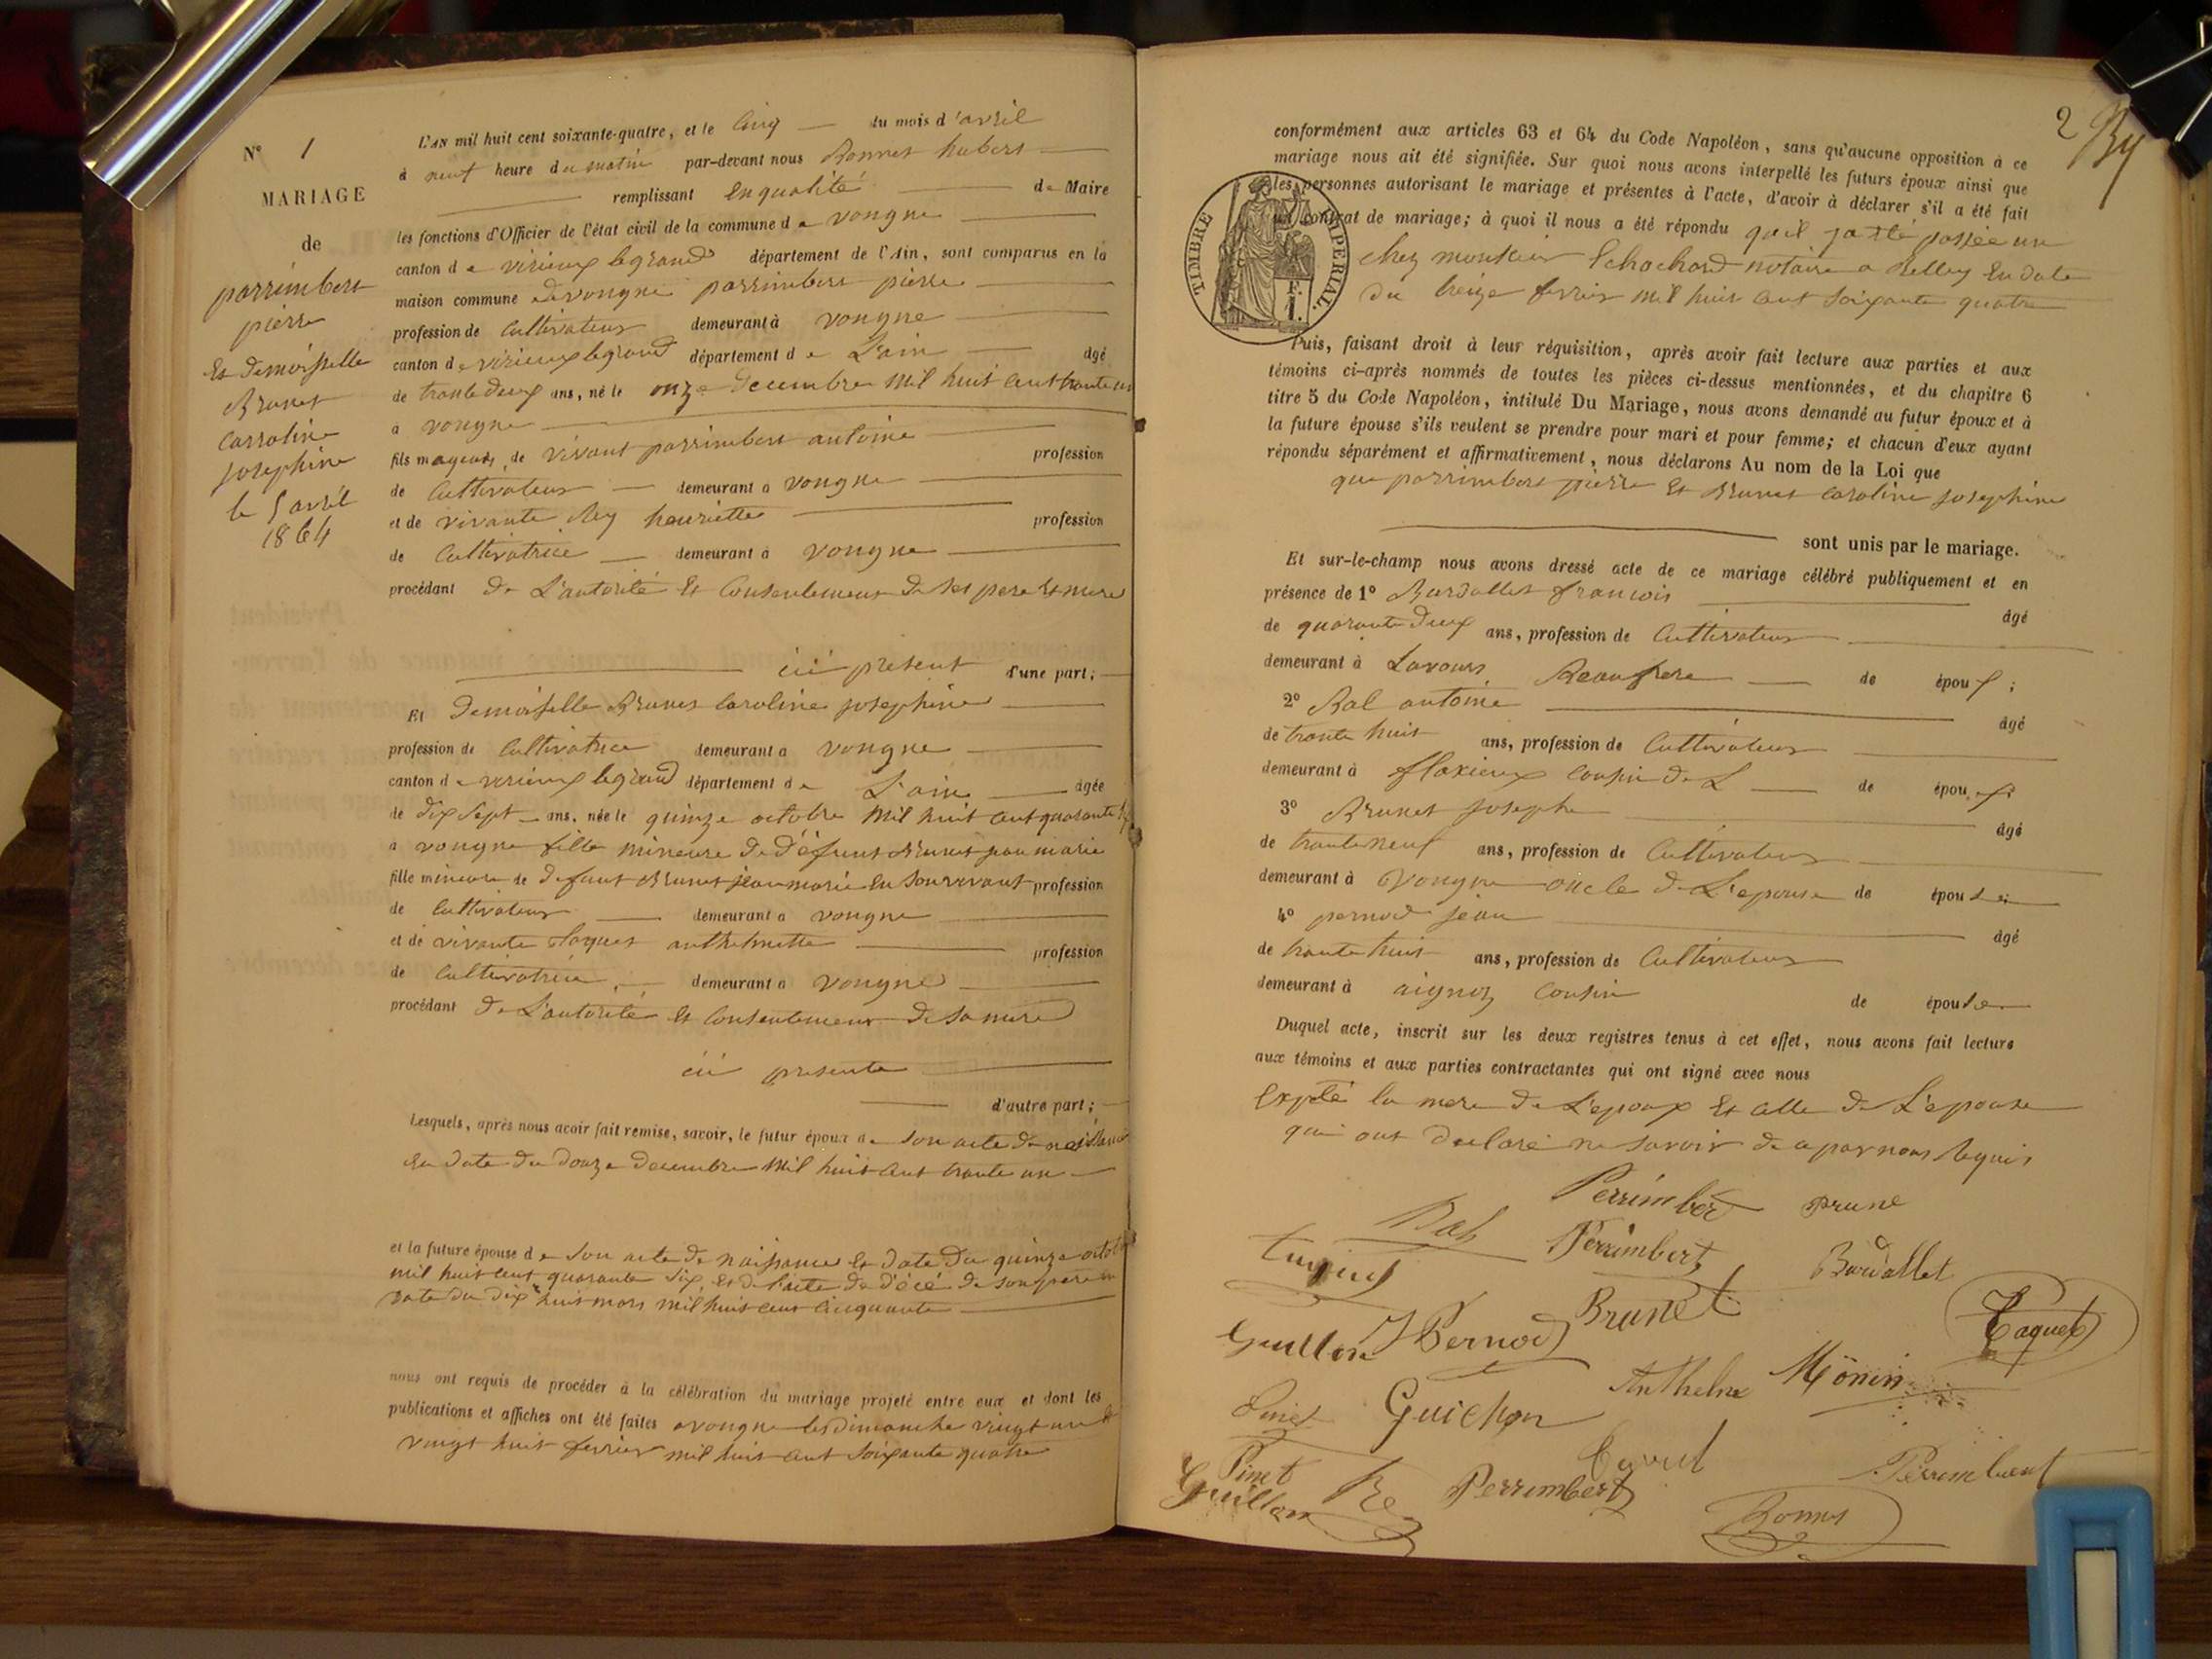 N° 1
MARIAGE
de
parrimbert
pierre
Et demoiselle
Brunet
Carroline
Josephine
le 5 avril
1864
L'AN mil huit cent soixante-quatre, et le cinq du mois d'avril
à neuf heure du matin par-devant nous Bonnet hubert
remplissant en qualité de Maire
les fonctions d'Officier de l'état civil de la commune de vongne
canton de virieux legrand département de l'Ain, sont comparus en la
maison commune de vongne parrimbert pierre
profession de Cultivateur demeurant à vongne
canton de virieux legrand département de L'ain âgé
de trente deux ans, né le onze decembre mil huit cent trente un
à vongne
fils mageur de vivant parrimbert antoine profession
de Cultivateur demeurant a vongne
et de vivante Rey henriette profession
de Cultivatrice demeurant à vongne
procédant de L'autorité Et Consentement de ses pere Et mere
ici présent d'une part;
Et demoiselle Brunet Caroline josephine
profession de Cultivatrice demeurant a vongne
canton de virieux legrand département de L'ain âgée
de dix sept ans, née le quinze octobre mil huit cent quarante
a vongne fille mineure de défunt Brunet jean marie
fille mineure de defunt Brunet jean marie En Son vivant profession
de Cultivateur demeurant a vongne
et de vivante anthelmette profession
de Cultivatrice demeurant a vongne
procédant de L'autorité Et Consentement de sa mere
ici presente
d'autre part;
Lesquels, après nous avoir fait remise, savoir, le futur époux de son acte de naissance
En date du douze decembre mil huit cent trente un
et la future épouse de son acte de naissance Et date du quinze octobre
mil huit cent quarante six, et de l'acte de décé de son pere en
date du dix huit mars mil huit cent cinquante
nous ont requis de procéder à la célébration du mariage projeté entre eux et dont les
publications et affiches ont été faites a vongne les dimanche vingt un et
vingt huit fevrier mil huit cent soixante quatre
2
conformément aux articles 63 et 64 du Code Napoléon, sans qu'aucune opposition à ce
mariage nous ait été signifiée. Sur quoi nous avons interpellé les futurs époux ainsi que
les personnes autorisant le mariage et présentes à l'acte, d'avoir à déclarer s'il a été fait
un contrat de mariage; à quoi il nous a été répondu qu'il
chez monsieur notaire a Belley En date
du treize fevrier mil huit cent soixante quatre
TIMBRE IMPERIAL
Puis, faisant droit à leur réquisition, après avoir fait lecture aux parties et aux
témoins ci-après nommés de toutes les pièces ci-dessus mentionnées, et du chapitre 6
titre 5 du Code Napoléon, intitulé Du Mariage, nous avons demandé au futur époux et à
la future épouse s'ils veulent se prendre pour mari et pour femme; et chacun d'eux ayant
répondu séparément et affirmativement, nous déclarons Au nom de la Loi que
que parrimbert pierre Et Brunet Caroline josephine
sont unis par le mariage.
Et sur-le-champ nous avons dressé acte de ce mariage célébré publiquement et en
présence de 1° Burdallet francois âgé
de quarante deux ans, profession de Cultivateur
demeurant à Lavours Beau frere de époux;
2° Bal antoine âgé
de trante huit ans, profession de Cultivateur
demeurant à flaxieux cousin de L de époux
3° Brunet josephe âgé
de trante neuf ans, profession de Cultivateur
demeurant à Vongne oncle de L'epouse de épouse;
4° pernod jean âgé
de trante huit ans, profession de Cultivateur
demeurant à aignoz Cousin de épouse
Duquel acte, inscrit sur les deux registres tenus à cet effet, nous avons fait lecture
aux témoins et aux parties contractantes qui ont signé avec nous
Expté la mere de L'epoux Et celle de L'epouse
qui ont declaré ne savoir de ce par nous Requis
Perrimbert prune
Bal Perrimbert Burdallet
Guillon J Pernod Brunet Taquet
Pinet Guichon Anthelme Mönin
Pinet Perrimbert Perrimbert
Guillon Rey Bonnet